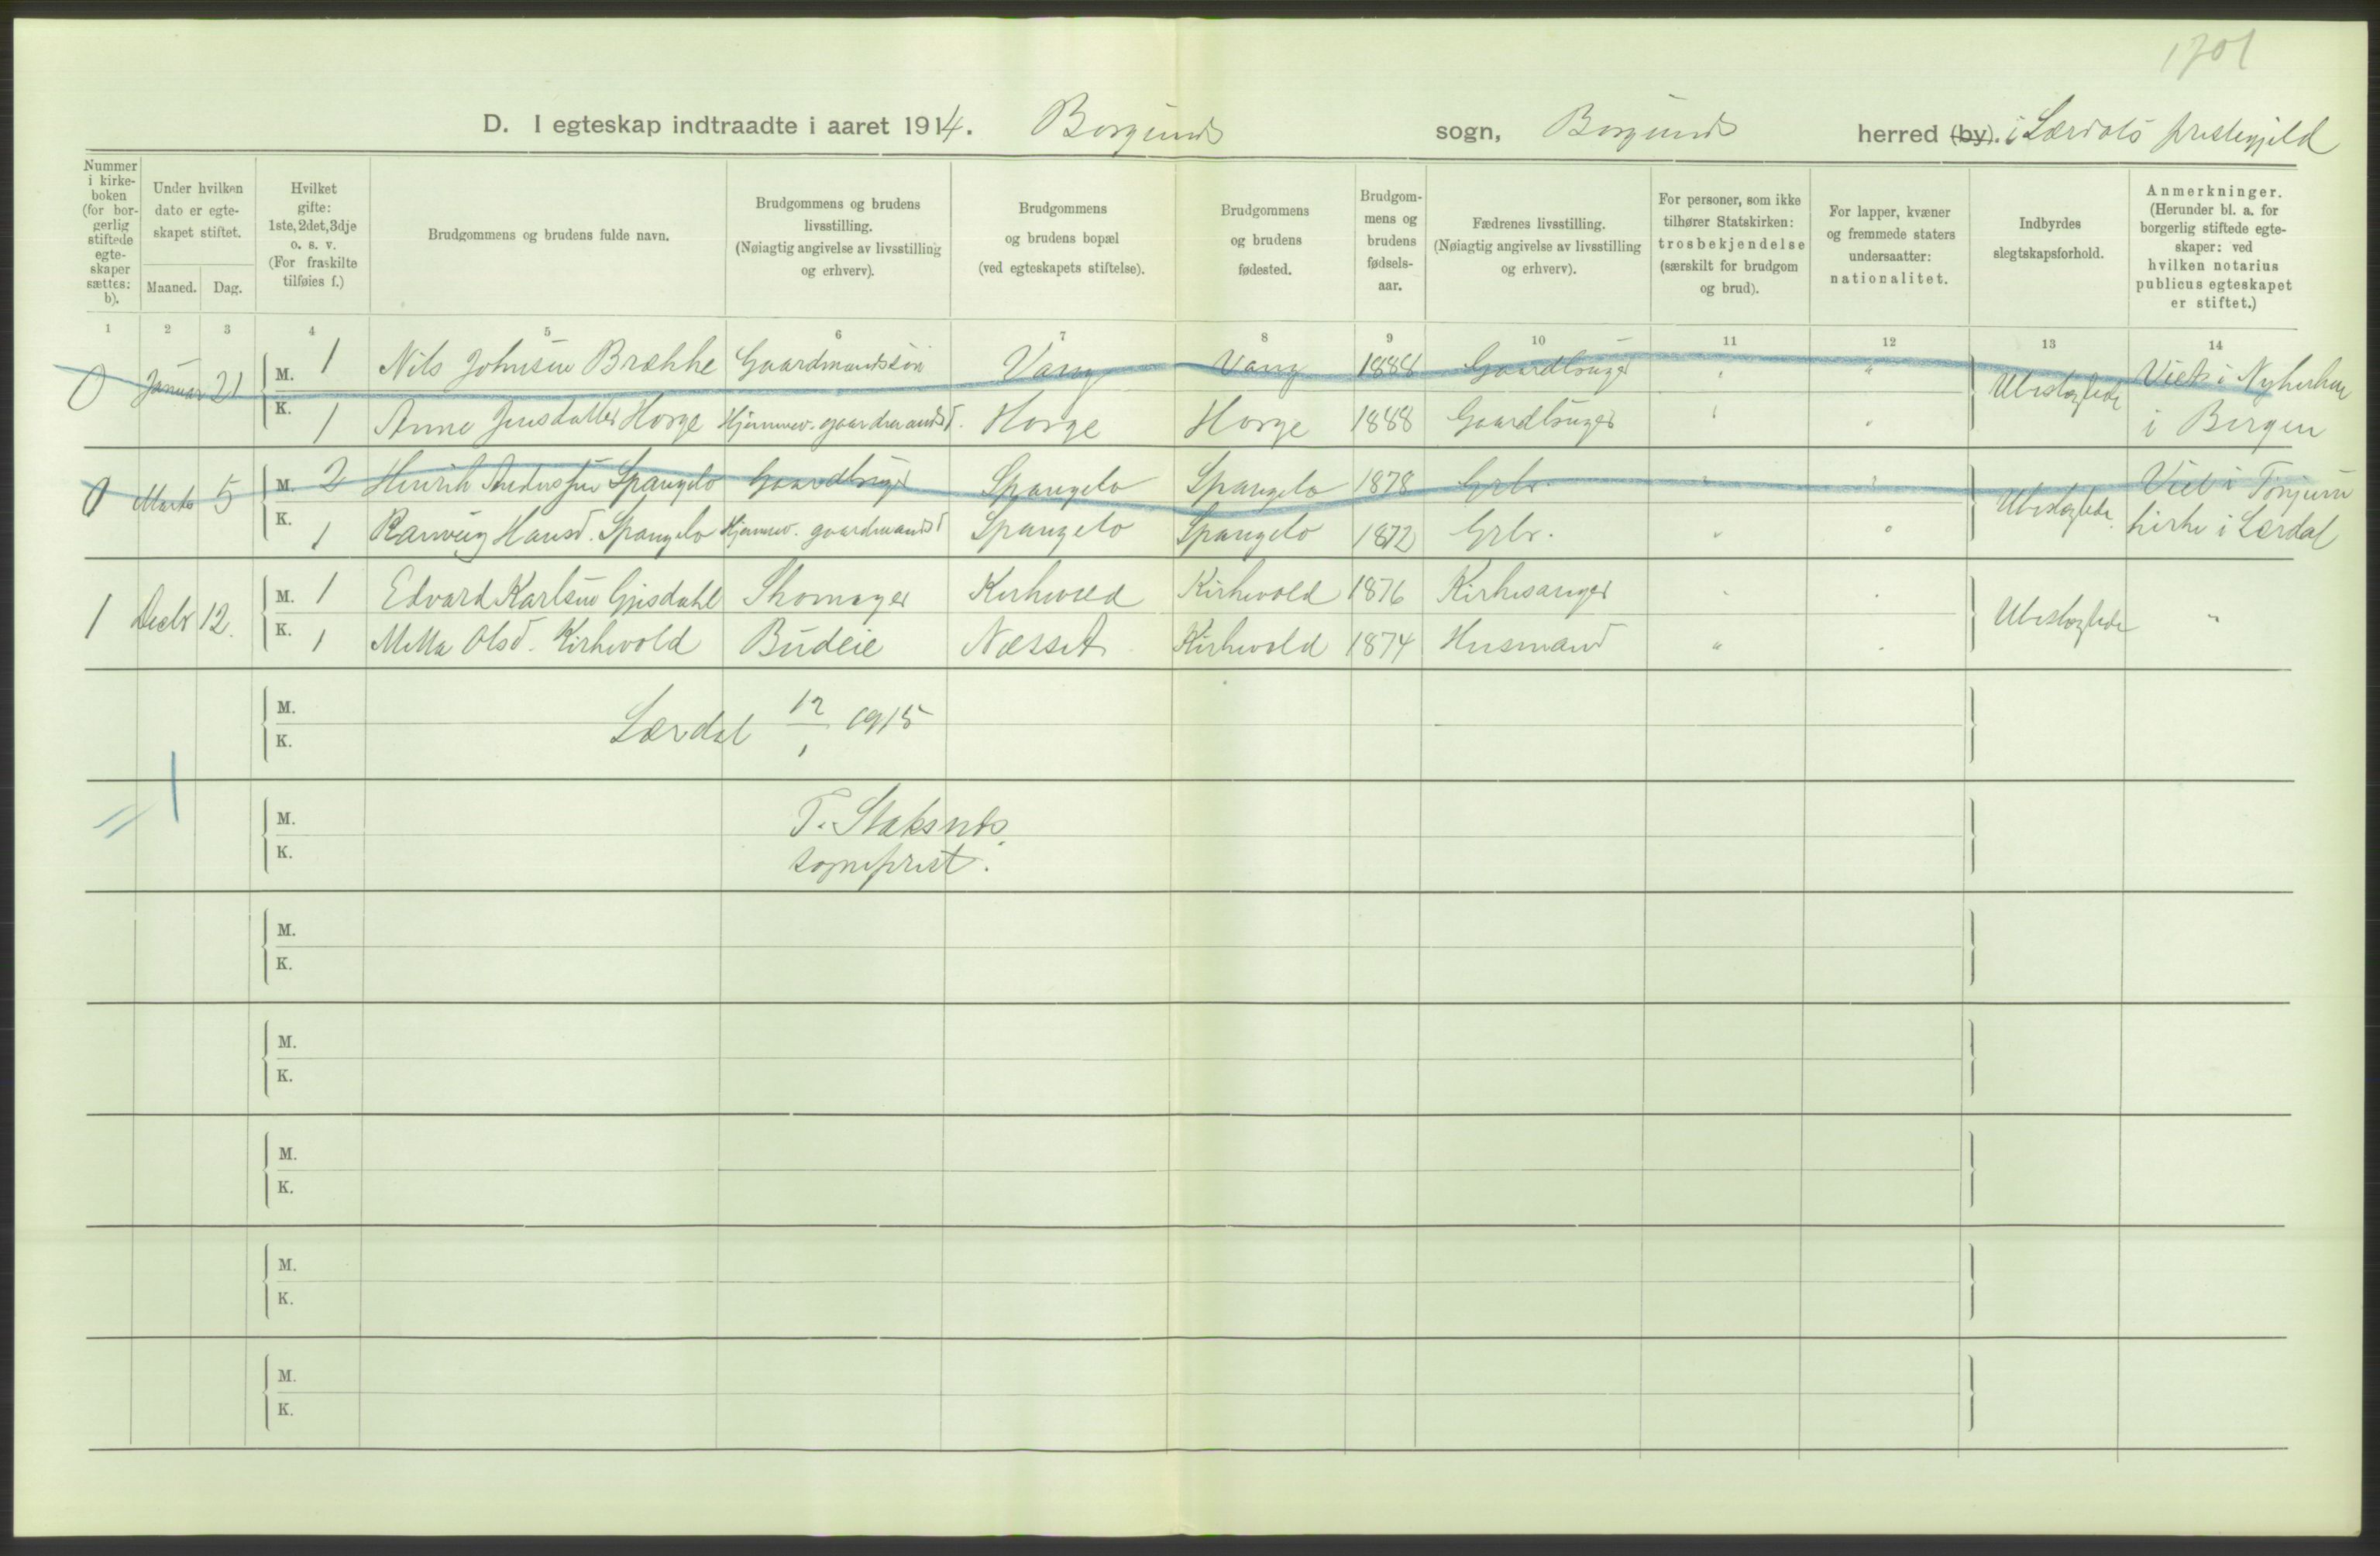 1701
D. I egteskap indtraadte i aaret 1914. Borgunds sogn, Borgunds herred (by). i Lærdals prestegjeld
Nummer i kirkeboken (for borgerlig stiftede egteskaper sættes: b).
Under hvilken dato er egteskapet stiftet.
Maaned. Dag.
Hvilket gifte: 1ste, 2det, 3dje o. s. v. (For fraskilte tilføies f.)
Brudgommens og brudens fulde navn.
Brudgommens og brudens livsstilling. (Nøiagtig angivelse av livsstilling og erhverv).
Brudgommens og brudens bopæl (ved egteskapets stiftelse).
Brudgommens og brudens fødested.
Brudgommens og brudens fødselsaar.
Fædrenes livsstilling. (Nøiagtig angivelse av livsstilling og erhverv).
For personer, som ikke tilhører Statskirken: trosbekjendelse (særskilt for brudgom og brud).
For lapper, kvæner og fremmede staters undersaatter: nationalitet.
Indbyrdes slegtskapsforhold.
Anmerkninger. (Herunder bl. a. for borgerlig stiftede egteskaper: ved hvilken notarius publicus egteskapet er stiftet.)
1 2 3 4 5 6 7 8 9 10 11 12 13 14
0 Januar 21 M. 1 Nils Johnsen Brække Gaardmandssøn Vang Vang 1888 Gaardbruger " " Ubeslegtede Viet i Nykirken
K. 1 Anna Jensdatter Horge Hjemmev. gaardmandsd. Horge Horge 1888 Gaardbruger " " i Bergen
0 Marts 5 M. 2 Henrik Anderssen Spangelo Gaardbruger Spangelo Spangelo 1878 Grbr. " " Ubeslegtede. Viet i Tønjum
K. 1 Ranveig Hansd. Spangelo Hjemmev. gaardmandsd Spangelo Spangelo 1872 Grbr. " " kirke i Lærdal
1 Decbr 12. M. 1 Edvard Karlsen Gjesdahl Skomager Kirkevold Kirkevold 1876 Kirkesanger " " Ubeslegtede "
K. 1 Metta Olsd. Kirkevold Budeie Nesset Kirkevold 1874 Husmand " "
M.
K.
Lærdal 12/1 1915
1
M.
K.
T. Staksnes
sogneprest.
M.
K.
M.
K.
M.
K.
M.
K.
M.
K.